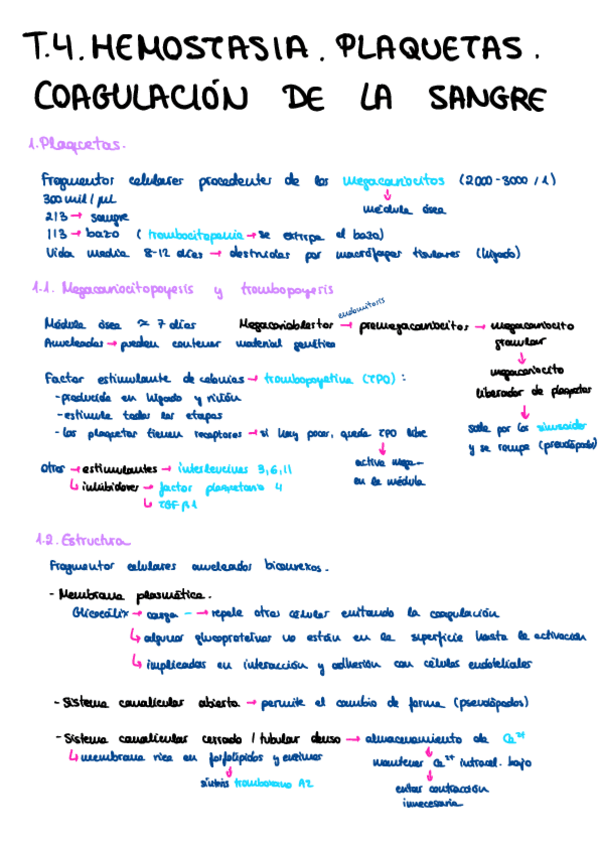 T.4. HEMOSTASIA. PLAQUETAS.
COAGULACIÓN DE LA SANGRE
1. Plaquetas.
Fragmentos celulares procedentes de los megacariocitos (2000-3000 / 1)
300 mil / µL
médula ósea
2/3 → sangre
1/3 → bazo (trombocitopenia → se extirpa el bazo)
Vida media 8-12 días → destruidas por macrófagos tisulares (hígado)
1.1. Megacariocitopoyesis y trombopoyesis
endomitosis
Médula ósea ≈ 7 días Megacarioblastos → promegacariocitos → megacariocito
granular
Anucleadas → pueden contener material genético
megacariocito
liberador de plaquetas
Factor estimulante de colonias → trombopoyetina (TPO):
- producida en hígado y riñón
- estimula todas las etapas
sale por los sinusoides
y se rompe (pseudópodos)
- las plaquetas tienen receptores → si hay pocas, queda TPO libre
activa mega-
en la médula
otros → estimulantes → interleucinas 3,6,11
↳ inhibidores → factor plaquetario 4
↳ TGF-β1
1.2. Estructura
Fragmentos celulares anucleados biconvexos.
- Membrana plasmática.
Glicocálix → carga - → repele otras células evitando la coagulación
↳ algunas glucoproteínas no están en la superficie hasta la activación
↳ implicadas en interacción y adhesión con células endoteliales
- Sistema canalicular abierto → permite el cambio de forma (pseudópodos)
- Sistema canalicular cerrado / tubular denso → almacenamiento de Ca²⁺
↳ membrana rica en fosfolípidos y enzimas
mantener Ca²⁺ intracel. bajo
síntesis tromboxano A2
evitar contracción
innecesaria